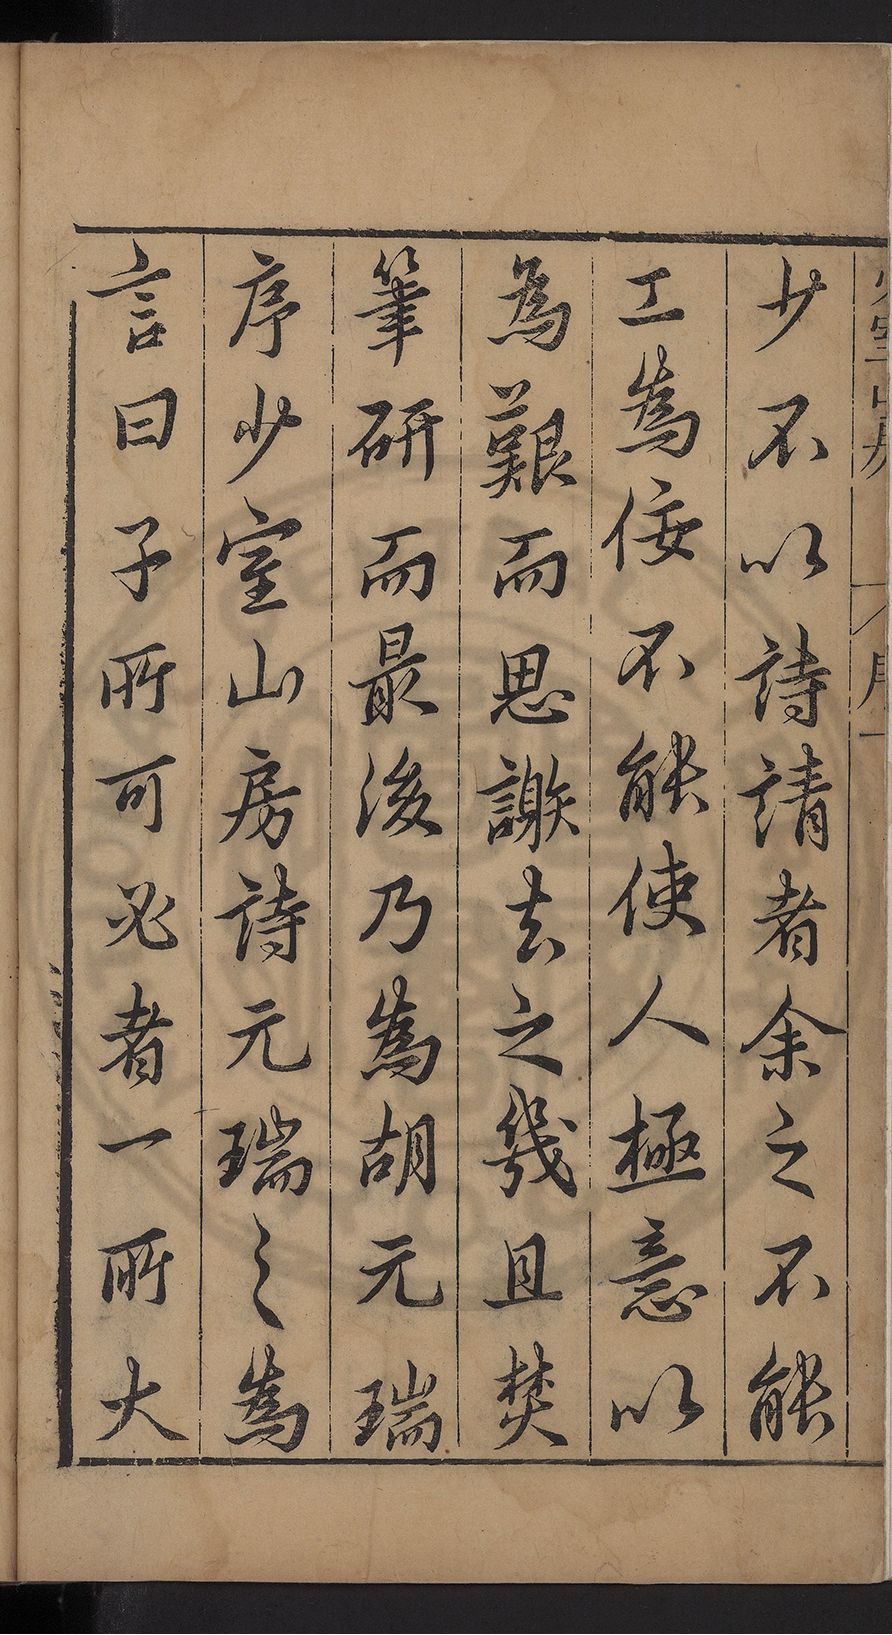 少不以詩請者余之不能
工為佞不能使人極意以
為艱而思謝去之幾且焚
筆研而最後乃為胡元瑞
序少室山房詩元瑞之為
言曰子所可必者一所大